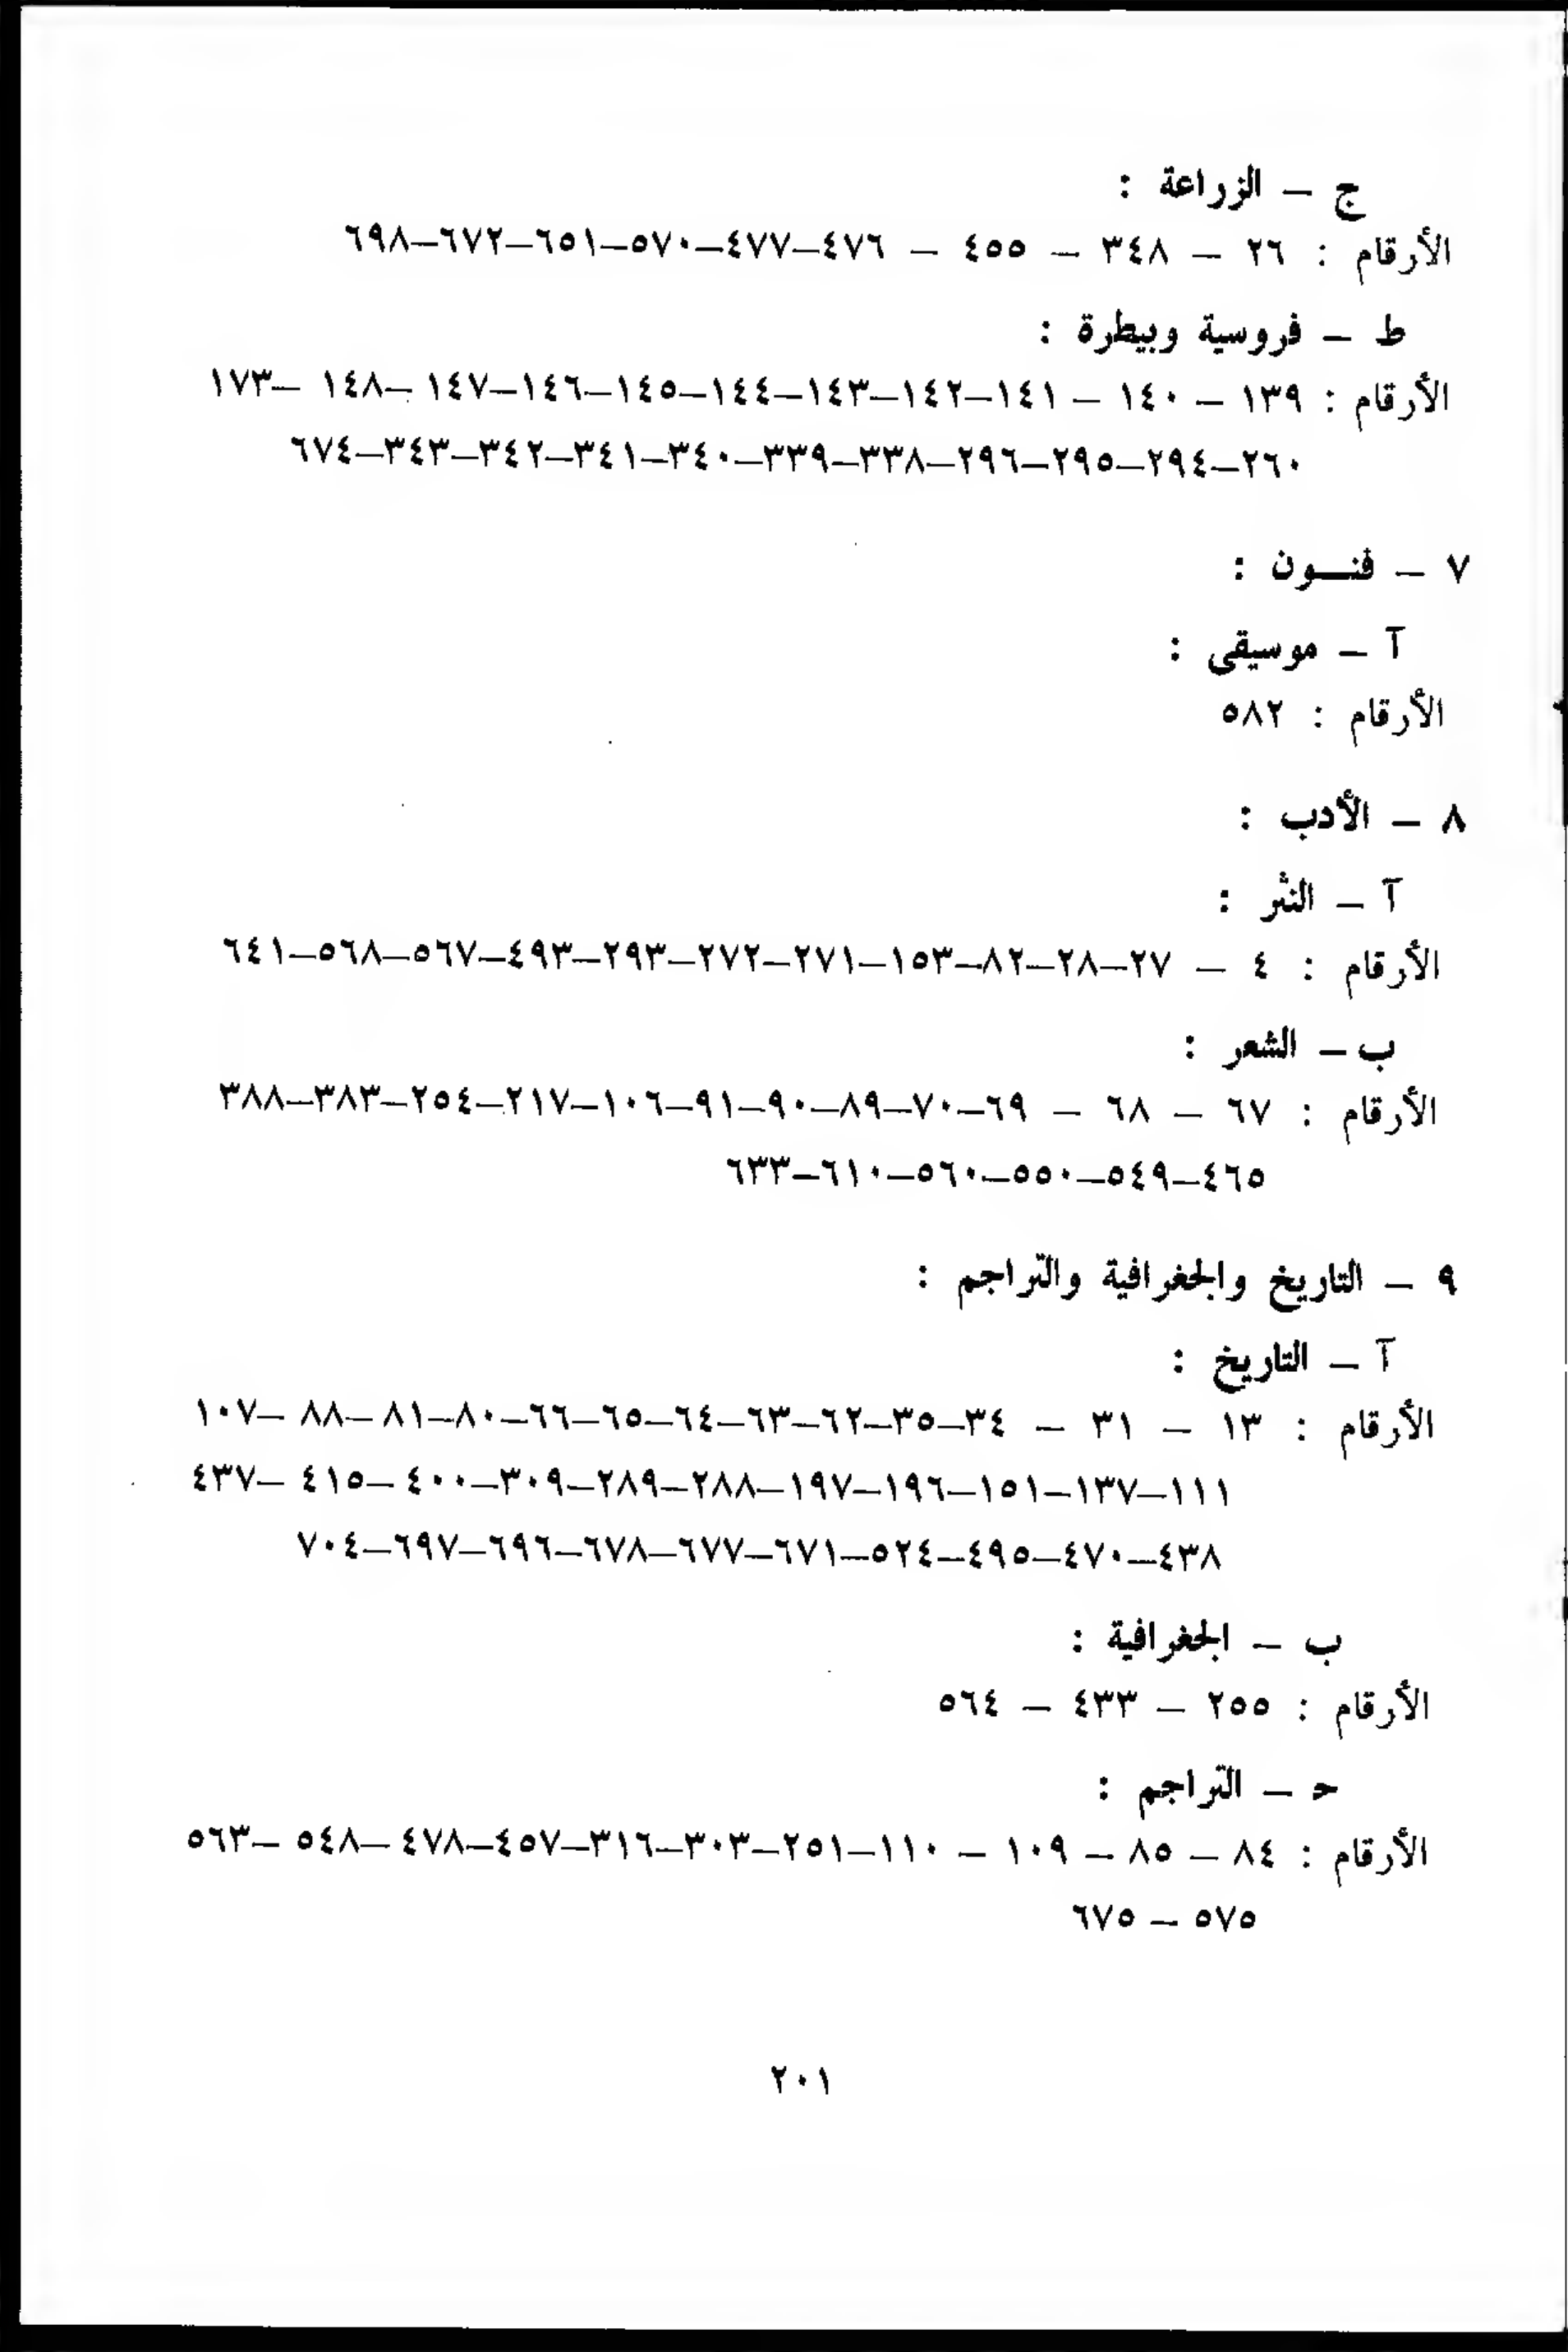 ج – الزراعة :
الأرقام : ٢٦ – ٣٤٨ – ٤٥٥ – ٤٧٦–٤٧٧–٥٧٠–٦٥١–٦٧٢–٦٩٨
ط – فروسية وبيطرة :
الأرقام : ١٣٩ – ١٤٠ – ١٤١–١٤٢–١٤٣–١٤٤–١٤٥–١٤٦–١٤٧ –١٤٨ –١٧٣
٢٦٠–٢٩٤–٢٩٥–٢٩٦–٣٣٨–٣٣٩–٣٤٠–٣٤١–٣٤٢–٣٤٣–٦٧٤
٧ – فنـــون :
آ – موسيقى :
الأرقام : ٥٨٢
٨ – الأدب :
آ – النثر :
الأرقام : ٤ – ٢٧–٢٨–٨٢–١٥٣–٢٧١–٢٧٢–٢٩٣–٤٩٣–٥٦٧–٥٦٨–٦٤١
ب – الشعر :
الأرقام : ٦٧ – ٦٨ – ٦٩–٧٠–٨٩–٩٠–٩١–١٠٦–٢١٧–٢٥٤–٣٨٣–٣٨٨
٤٦٥–٥٤٩–٥٥٠–٥٦٠–٦١٠–٦٣٣
٩ – التاريخ والجغرافية والتراجم :
آ – التاريخ :
الأرقام : ١٣ – ٣١ – ٣٤–٣٥–٦٢–٦٣–٦٤–٦٥–٦٦–٨٠–٨١ –٨٨ –١٠٧
١١١–١٣٧–١٥١–١٩٦–١٩٧–٢٨٨–٢٨٩–٣٠٩–٤٠٠ –٤١٥ –٤٣٧
٤٣٨–٤٧٠–٤٩٥–٥٢٤–٦٧١–٦٧٧–٦٧٨–٦٩٦–٦٩٧–٧٠٤
ب – الجغرافية :
الأرقام : ٢٥٥ – ٤٣٣ – ٥٦٤
حـ – التراجم :
الأرقام : ٨٤ – ٨٥ – ١٠٩ – ١١٠–٢٥١–٣٠٣–٣١٦–٤٥٧–٤٧٨ –٥٤٨ –٥٦٣
٥٧٥ – ٦٧٥
٢٠١